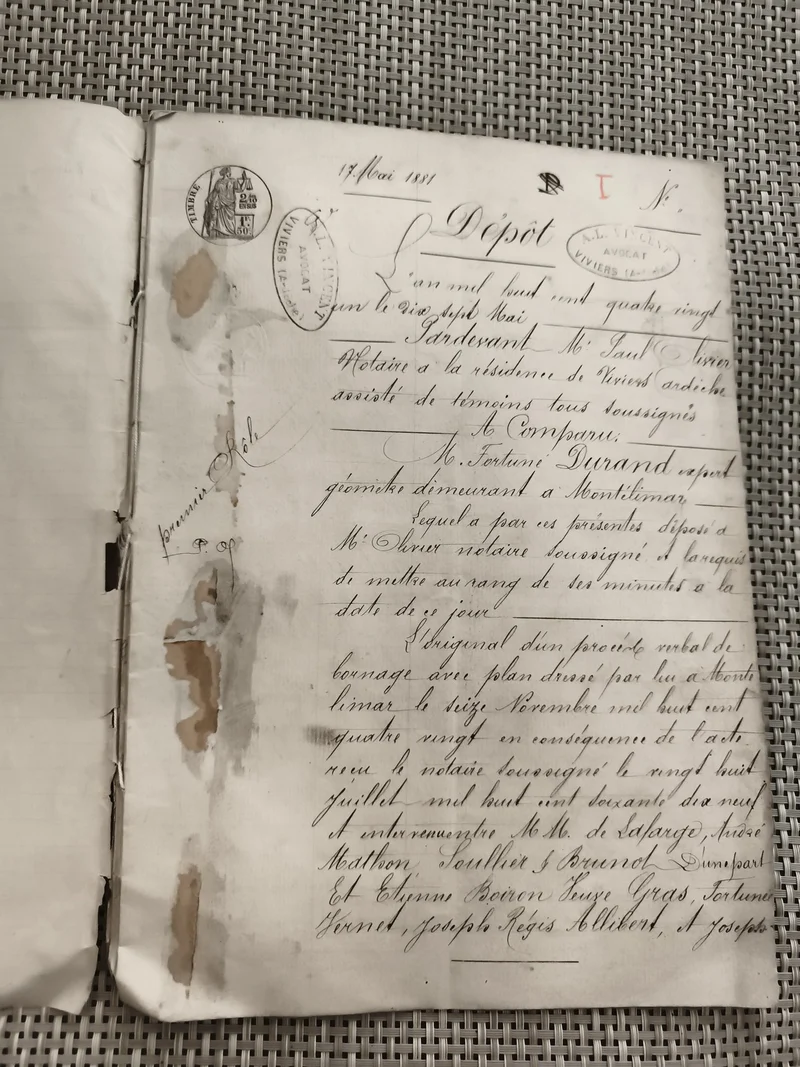 17 Mai 1881
I
N°
TIMBRE
Dépôt
A.L. VINCENT
AVOCAT
VIVIERS
A.L. VINCENT
AVOCAT
VIVIERS
L'an mil huit cent quatre vingt
un le dix sept Mai
Pardevant Me Paul Olivier
Notaire a la résidence de Viviers ardèche
assisté de témoins tous soussignés
A Comparu:
M. Fortuné Durand expert
géomètre demeurant a Montélimar
Lequel a par ces présentes déposé a
Me Olivier notaire soussigné et la requis
de mettre au rang de ses minutes a la
date de ce jour
premier Rôle
P. O
L'original d'un procès verbal de
bornage avec plan dressé par lui a Monté
limar le seize Novembre mil huit cent
quatre vingt en conséquence de l'acte
recu le notaire soussigné le vingt huit
Juillet mil huit cent soixante dix neuf
et intervenu entre MM. de Lafarge, André
Mathon, Soullier & Brunot D'une part
Et Etienne Boiron Veuve Gras, Fortuné
Vernet, Joseph Régis Allibert, et Joseph